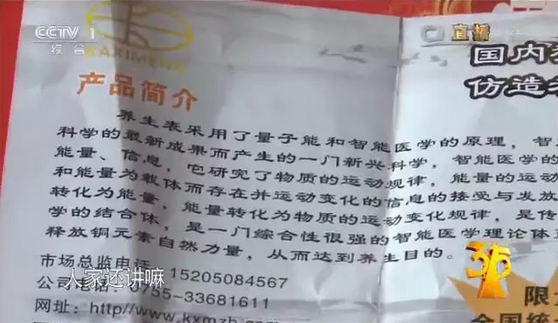 CCTV 1
综合
直播
KAXIMENG
国内
仿造
产品简介
养生表采用了量子能和智能医学的原理，智能
科学的最新成果而产生的一门新兴科学，智能医学的
能量、信息，它研究了物质的运动规律，能量的运动
和能量为载体而存在并运动变化的信息的接受与发放
转化为能量，能量转化为物质的运动变化规律，是传
学的结合体，是一门综合性很强的智能医学理论体
释放铜元素自然力量，从而达到养生目的。
市场总监电话：15205084567
公司 0755-33681611
网址：http://www.kxmzb.
人家还讲嘛
315
限
全国统